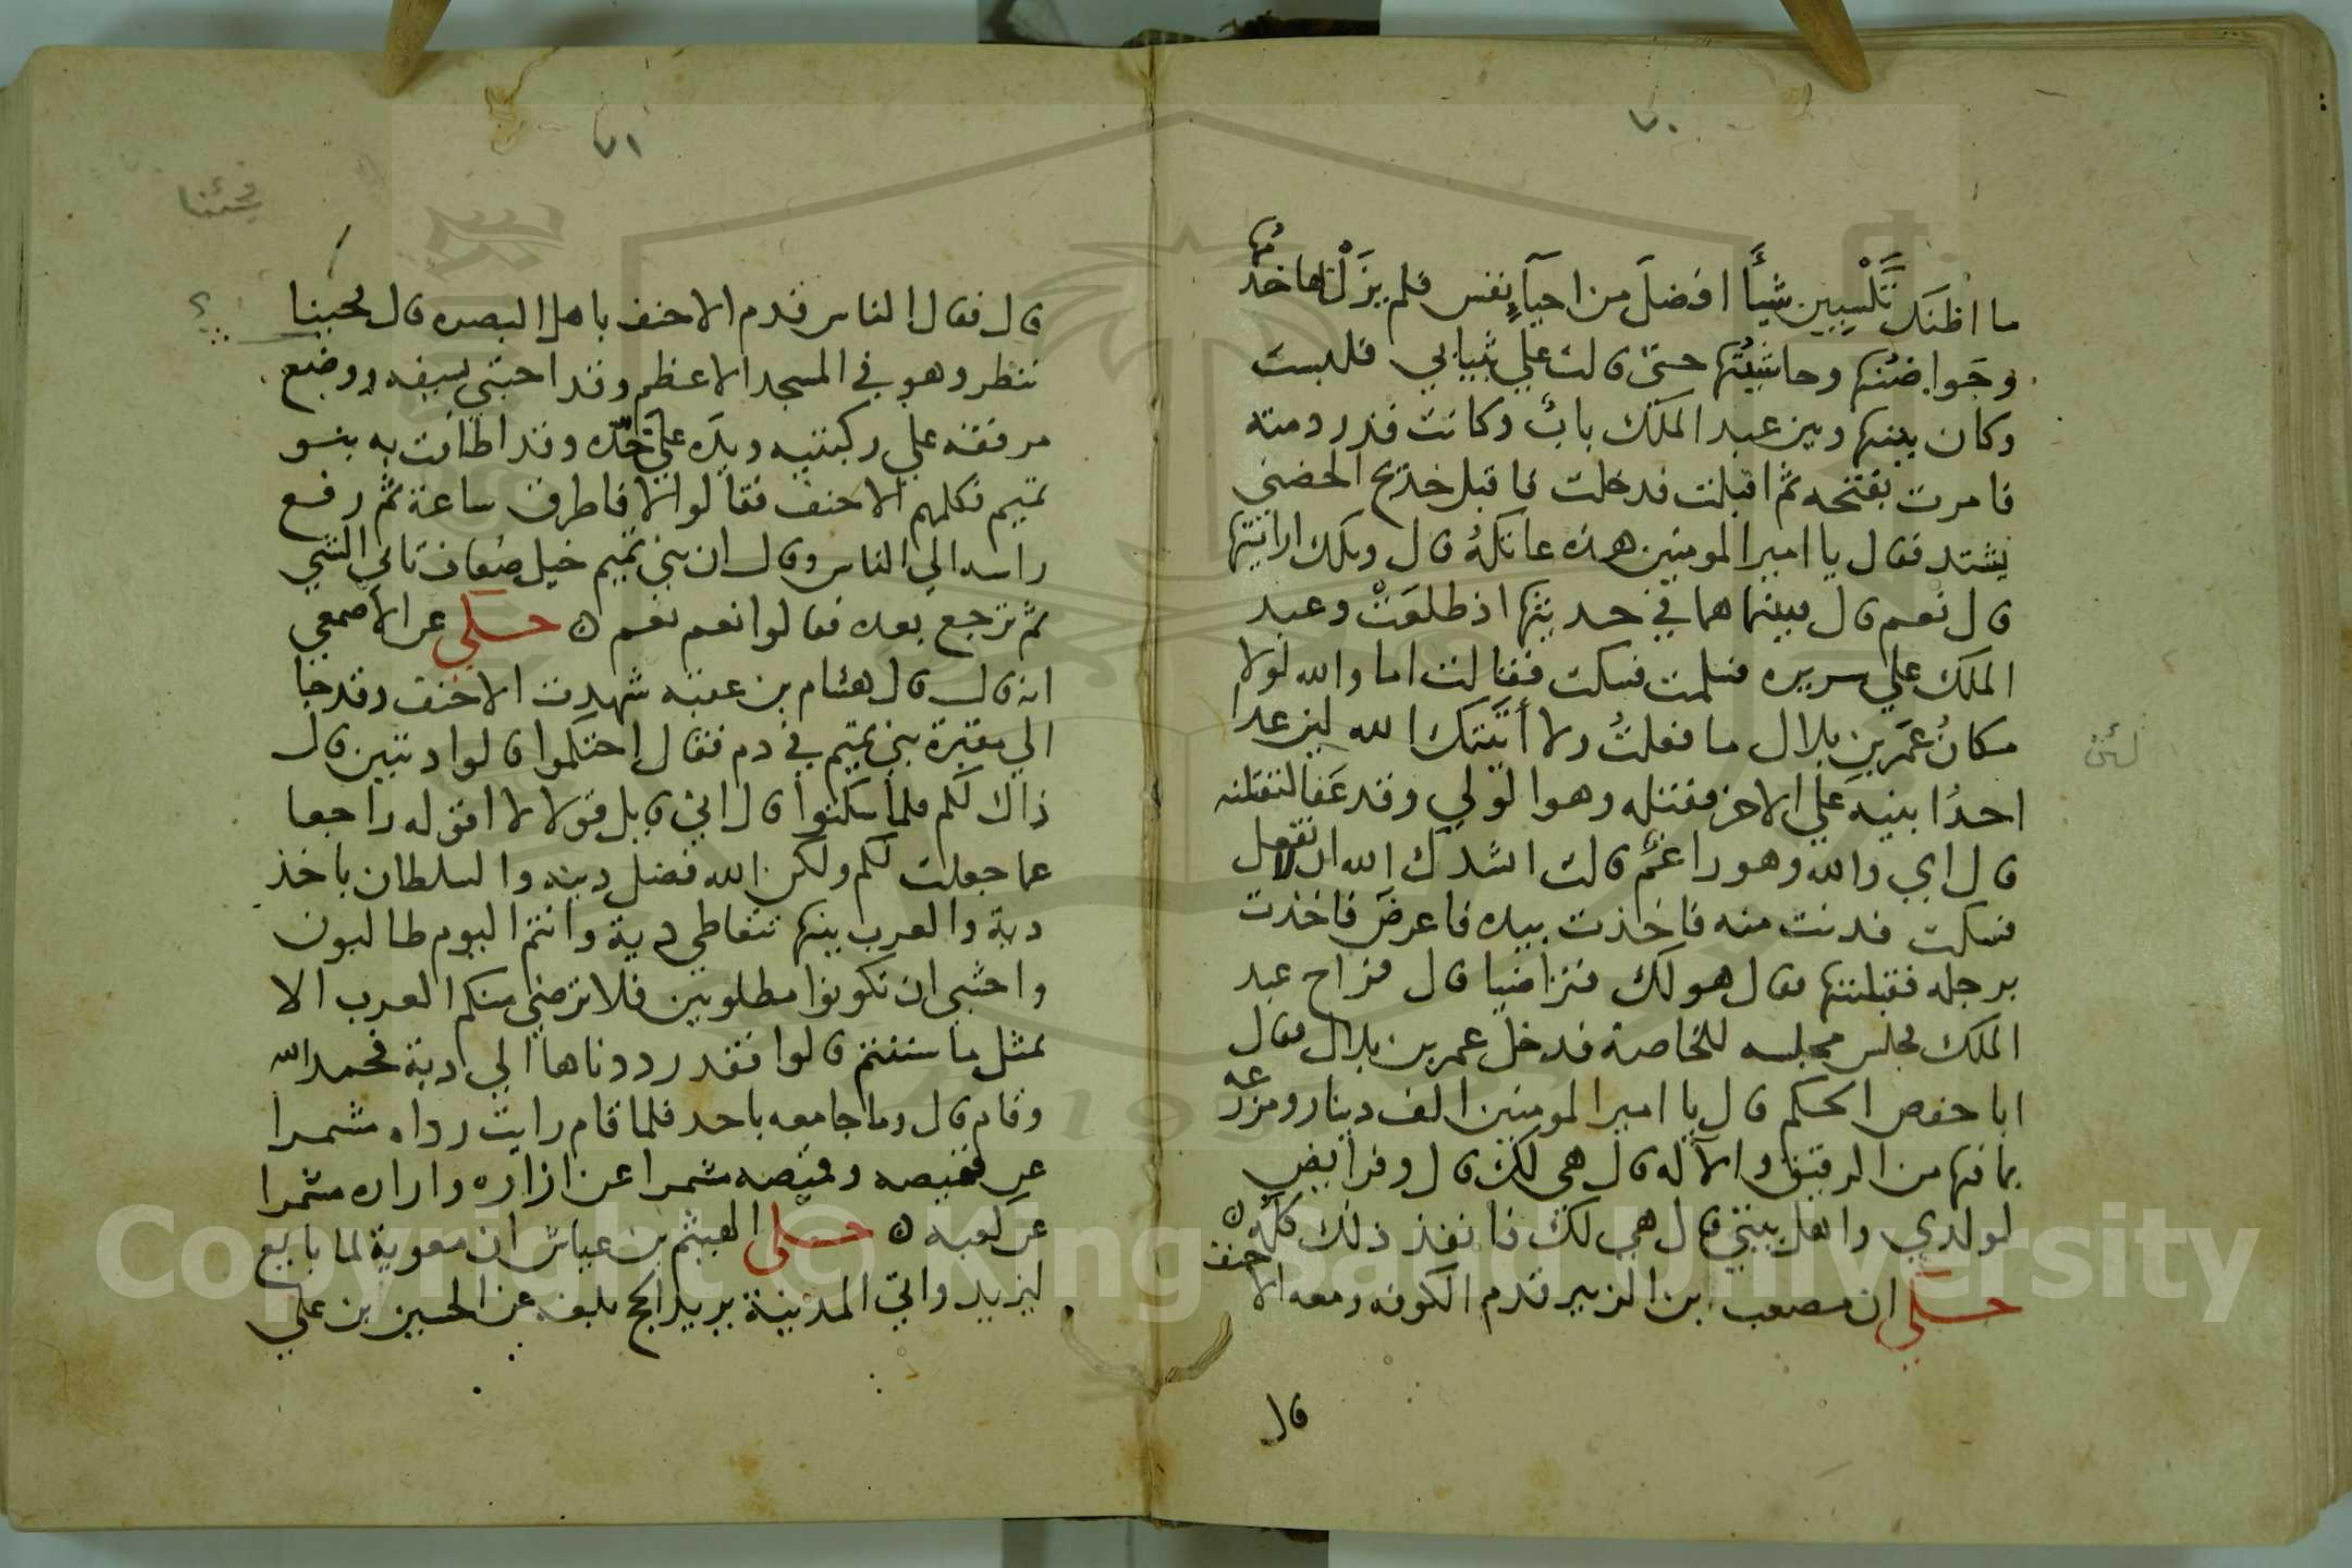 ٧٠
ما اظنك تَلْبِسين شيأً افضلَ من احياءِ نفس فلم يزَلْنَ بها خدمُها
وجَواضنُها وحاشيتُها حتى قالت علي بثيابي فلبست
وكان بينها وبين عبد الملك بابٌ وكانت قد ردمته
فامرت بفتحه ثم اقبلت فدخلت فاقبل خديج الخصي
يشتد فقال يا امير المومنين هذه عاتكةُ قال ويلك ارايتها
قال نعم قال فبينما هما في حديثها اذ طلعَتْ وعبد
الملك علي سريره فسلمت فسكت فقالت اما والله لولا
مكانُ عمَر بن بلال ما فعلتُ ولا أتيَتك الله ليز عدا
لئن
احدُ ابنيه علي الاخر فقتله وهو الولي وقد عَفا لتقتلنه
قال اي والله وهو راغمٌ قالت انشدك الله ان لا تفعل
فسكت فدنت منه فاخذت بيده فاعرضَ فاخذت
برجله فقبلتها فقال هو لك فتراضيا قال فراح عبد
الملك فجلس مجلسه للخاصة فدخل عمر بن بلال فقال
ابا حفص احكم قال يا امير المومنين الف دينار ومزرعه
بما فيها من الرقيق والآله قال هي لك قال وفرايض
لولدي واهل بيتي قال هي لك فانفذ ذلك كلُه ن
حكي ان مصعب بن الزبير قدم الكوفه ومعه الاحنف
قال
٧١
فجئنا
قال فقال الناس قدم الاحنف باهل البصره قال فجينا
؟
ننظر وهو في المسجد الاعظم وقد احتبي بسيفه ووضع
مرفقه علي ركبتيه ويدَه علي خدّه وقد اطافت به بنو
تميم فكلمهم الاحنف فقالوا لا فاطرق ساعة ثم رفع
راسه الي الناس وقال ان بني تميم خيل ضعاف تاتي الشي
ثم ترجع بعده فقالوا نعم نعم ن حكي عن الاصمعي
انه قال قال هشام بن عقبه شهدت الاحنف وقد جا
الي مقبرة بني تميم في دم فقال احتكموا قالوا ديتين قال
ذاك لكم فلما سكتوا قال اني قايل قولا لا اقوله راجعا
عما جعلت لكم ولكن الله فضل دينه والسلطان ياخذ
دية والعرب بينها تتعاطي دية وانتم اليوم طالبون
واخشي ان تكونوا مطلوبين فلا ترضي منكم العرب الا
بمثل ما سننتم قالوا فقد رددناها الي دية فحمد الله
وقام قال وما جا معه باحد فلما قام رايت رداه مشمرا
عن قميصه وقميصه مشمرا عن ازاره وازاره مشمرا
عن كعبه ن حكي الهيثم بن عياش ان معوية لما بايع
ليزيد واتي المدينة يريد الحج بلغه عن الحسين بن علي